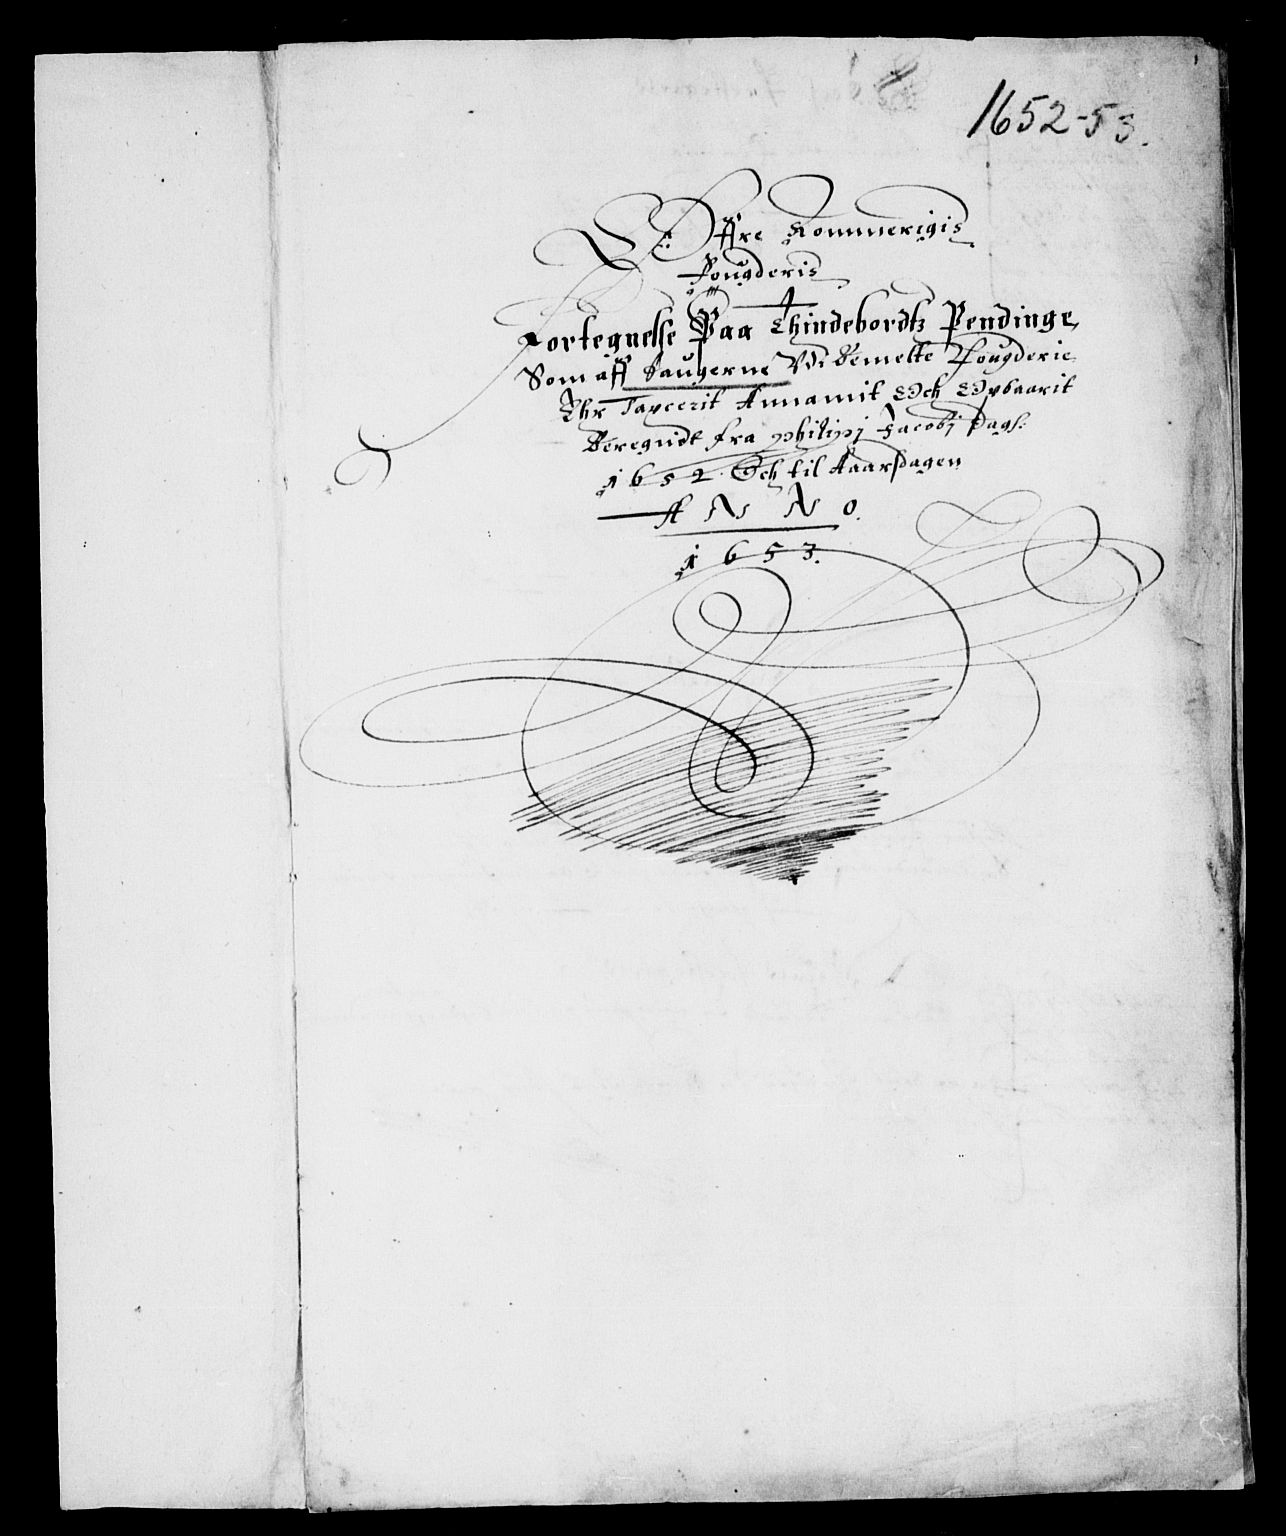 1652-53.
Øffre Rommerigis
Fougderis
Fortegnelse Paa Thindebordtz Pendinge
Som aff Saugerne Vdi Bemelte Fougderie
Ehr Taxcerit Annamit Och Opbaarit
Beregnidt fra Philipj Jacobj dags
1652. Och til Aarsdagen
ANNO.
1653.